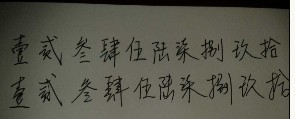 壹贰叁肆伍陆柒捌玖拾
壹贰叁肆伍陆柒捌玖拾